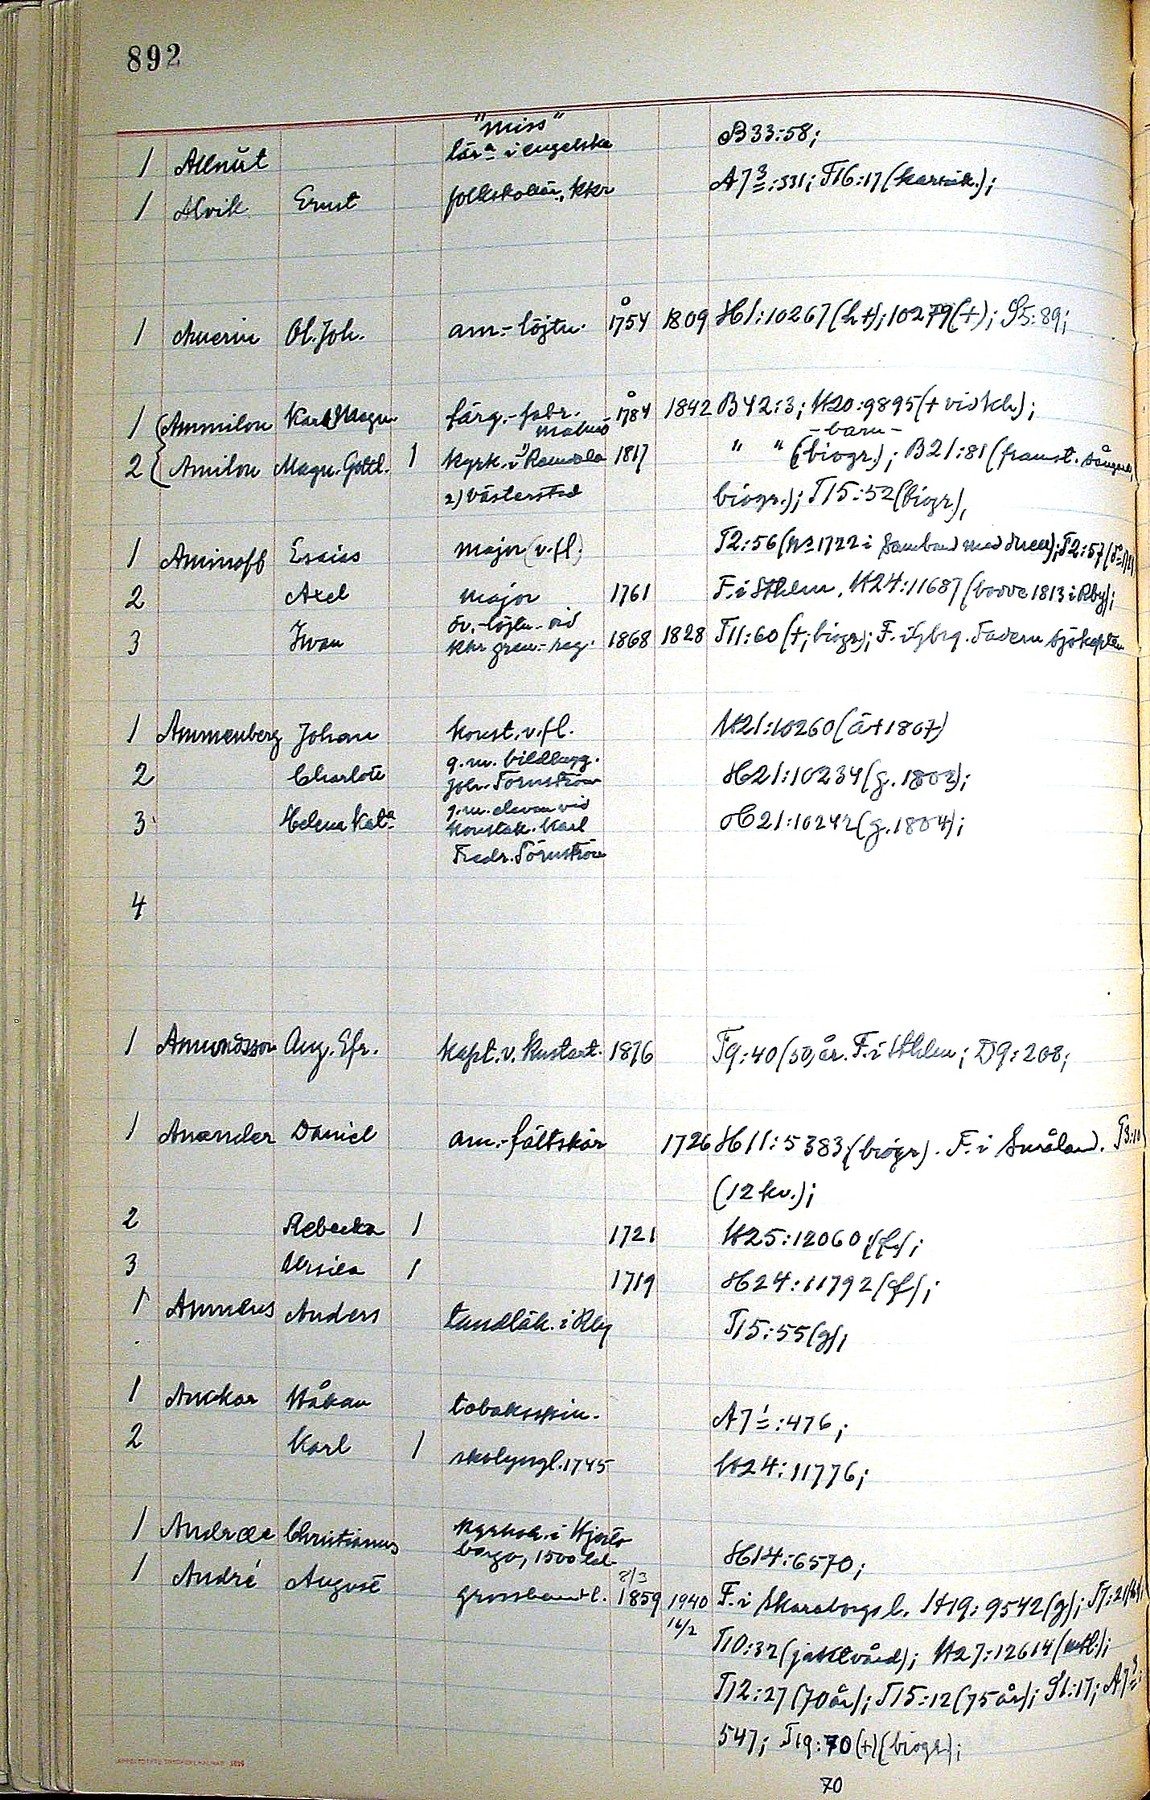 892
"miss"
1 Allnut lära i engelska B33:58;
1 Alvik Ernst folkskollär., kkr A7 3:531; T16:17 (karrik.);
1 Ol. Joh. am.-löjtn. å 1754 1809 H1:10267 (h+); 10279 (+); S5:89;
1 Ammilon Karl Magn. färg.-fabr. å 1784 1842 B42:3; H20:9895 (+ vid kh);
- barn -
2 Amilon Magn. Gottl. 1 kyrk. i 1) Ramdala 1817 " " (biogr.); B21:81 (framst.
2) Västerstad biogr.); T15:52 (biogr),
1 Aminoff Esaias major (v. fl.) T2:56 (1722 i samband med T2:57
2 Axel major 1761 F. i Sthlm, H24:11687 (bodde 1813 i Rby);
öv.-löjtn. vid
3 Iwan kkr gren.-reg. 1868 1828 T11:60 (+; biogr); F. i Fadern sjökapten
1 Ammenberg Johan konst. v. fl. H21:10260 (å + 1807)
g. m. bildhugg.
2 Charlotte Joh. Törnström H21:10234 (g. 1802);
g. m. eleven vid
3 Helena Kata konstak. Karl H21:10242 (g. 1804);
Fredr. Törnström
4
1 Amundsson Aug. Efr. kapt. v. kustart. 1876 T9:40 (50 år. F. i Sthlm; D9:208;
1 Anander Daniel am.-fältskär 1726 H11:5383 (biogr). F. i Småland.
(12 kv.);
2 Rebecka 1 1721 H25:12060 (f);
3 Ursila 1 1719 H24:11792 (f);
1 Anders tandläk. i Rby T15:55 (g);
1 Anckar Håkan tobaksspin. A7 1:476;
2 Karl 1 skolyngl. 1745 H24:11776;
1 Andræ Christianus kyrkoh. i Hjorts-
berga, 1500 tal H14:6570;
8/3
1 André August grosshandl. 1859 1940 F. i Skaraborgs l. H19:9542 (g);
16/2 T10:32 (jaktvård); H27:12614
T12:27 (70 år); T15:12 (75 år); S1:17; A7 3:
547; T19:70 (+) (biogr);
70